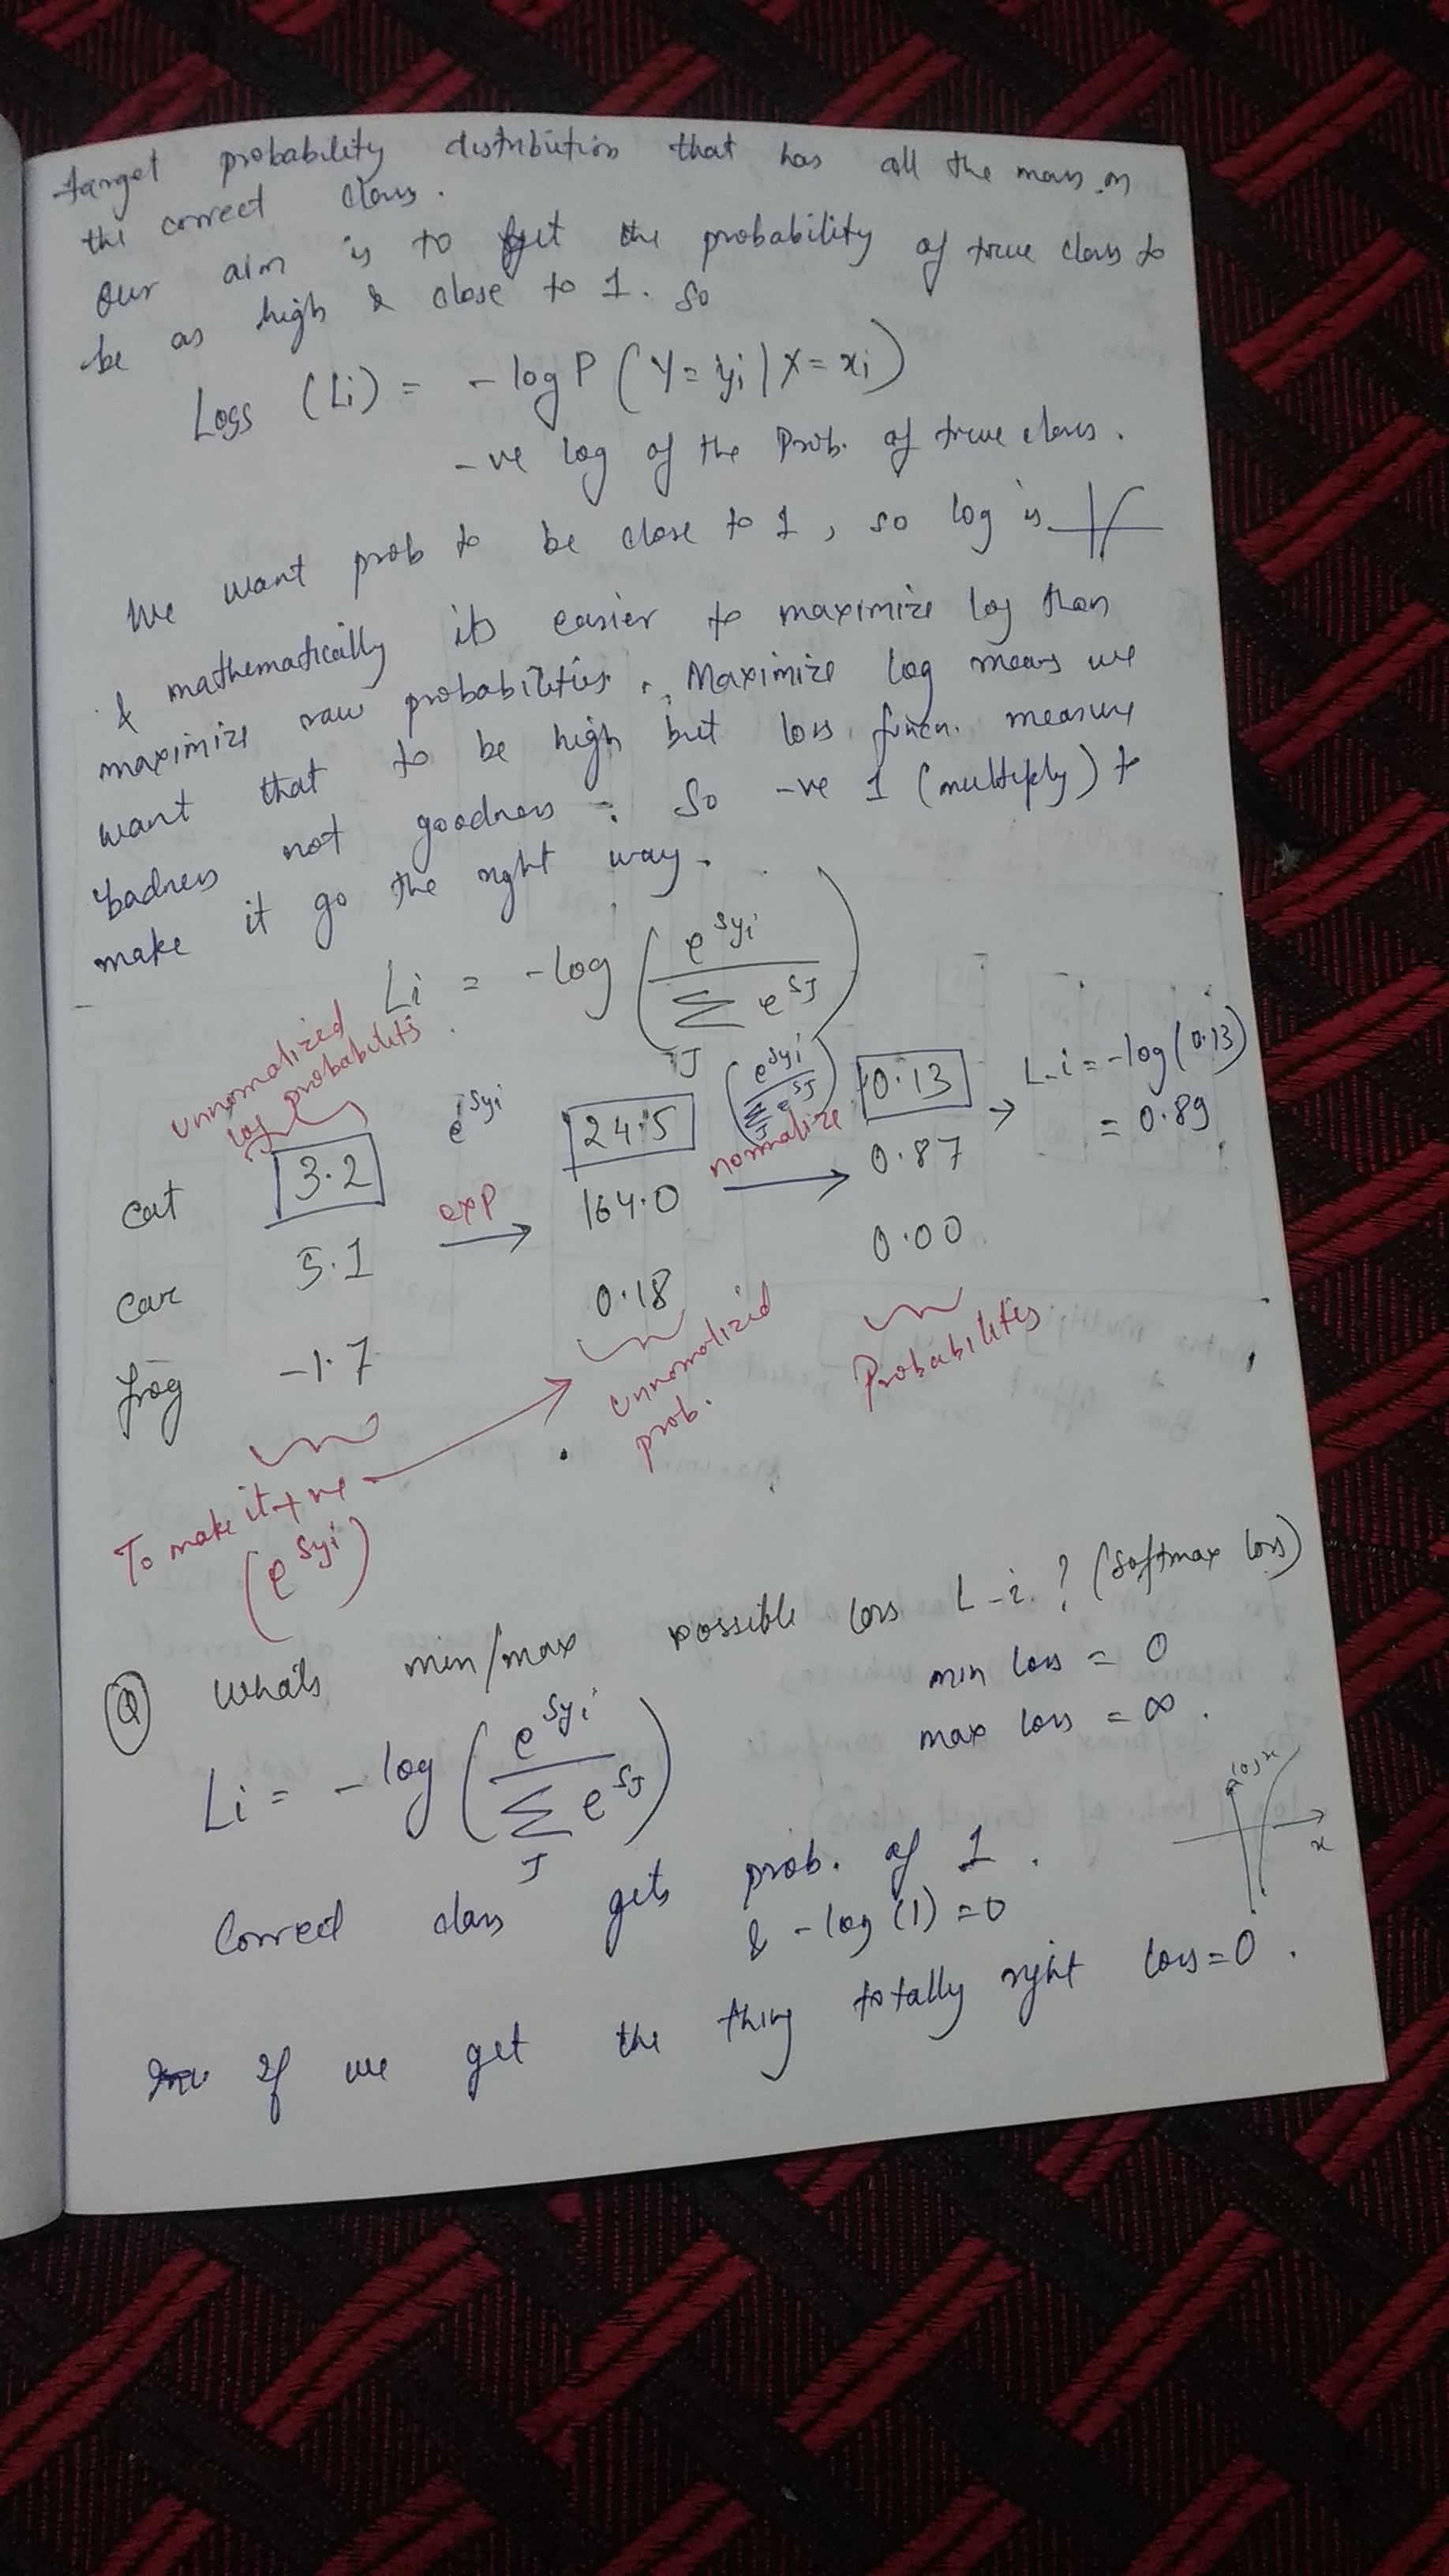 target probability distribution that has all the mass on
the correct class.
Our aim is to get the probability of true class to
be as high & close to 1. So
Loss (Li) = - log P (Y = yi | X = xi)
-ve log of the Prob. of true class.
We want prob to be close to 1, so log is
& mathematically its easier to maximize log than
maximize raw probabilities. Maximize log means we
want that to be high but loss funcn. measure
badness not goodness. So -ve 1 (multiply) to
make it go the right way.
Li = -log ( e^syi / Σ_J e^sJ )
unnormalized
log probabilits
e^syi
( e^syi / Σ_J e^sJ )
normalize
exp
cat 3.2 24.5 0.13 → L-i = -log(0.13)
= 0.89
car 5.1 164.0 0.87
frog -1.7 0.18 0.00
unnormalized
prob.
Probabilites
To make it +ve
(e^syi)
Q Whats min/max possible loss L-i ? (Softmax loss)
min loss = 0
max loss = ∞.
Li = - log ( e^syi / Σ_J e^sJ )
log x
x
Correct class gets prob. of 1.
& -log (1) = 0
If we get the thing totally right loss = 0.